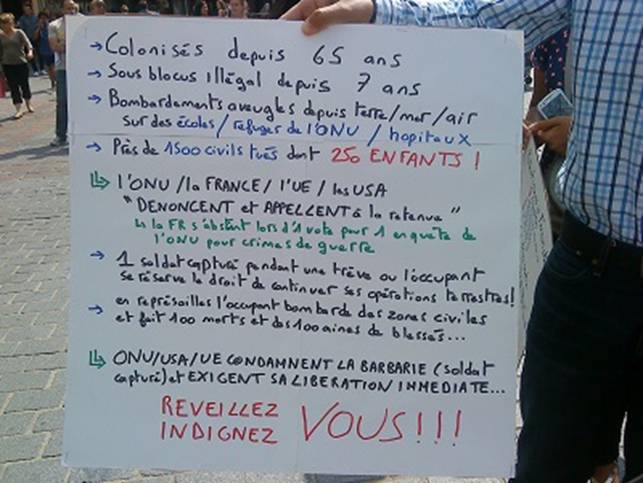 → Colonisés depuis 65 ans
→ Sous blocus illégal depuis 7 ans
→ Bombardements aveugles depuis terre/mer/air
sur des écoles / refuges de l'ONU / hopitaux
→ Près de 1500 civils tués dont 250 ENFANTS !
↳ l'ONU / la FRANCE / l'UE / les USA
"DENONCENT et APPELLENT à la retenue"
↳ la FR s'abstient lors d'1 vote pour 1 enquète de
l'ONU pour crimes de guerre
→ 1 soldat capturé pendant une trève ou l'occupant
se réserve le droit de continuer ses opérations terrestres!
→ en représailles l'occupant bombarde des zones civiles
et fait 100 morts et des 100aines de blessés...
↳ ONU/USA/UE CONDAMNENT LA BARBARIE (soldat
capturé) et EXIGENT SA LIBERATION IMMEDIATE...
REVEILLEZ
INDIGNEZ VOUS!!!